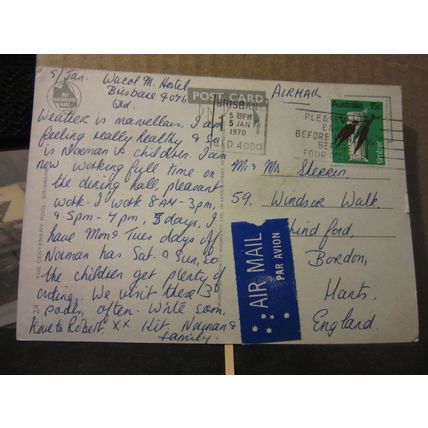 5/Jan. Wacol M. Hostel
Brisbane 4076
Qld.
Weather is marvellous. I am
feeling really healthy & so
is Norman & children. I am
now working full time on
the dining hall, pleasant
work. I work 8 AM - 3pm,
& 5pm - 7pm, 5 days, I
have Mon & Tues days off
Norman has Sat. & Sun, so
the children get plenty of
outing. We visit these 3
pools, often. Write soon.
Love to Robert. xx Kit, Norman &
family.
POST CARD
AIRMAIL
BRISBANE
5 JAN
1970
QLD. 4000
PLEASE
BEFORE
FOUR
Australia 15c
timber
Mr & Mrs
59, Windsor Walk,
Lindford,
Bordon,
Hants,
England.
AIR MAIL
PAR AVION
24 THE CENTENARY POOL, BRISBANE